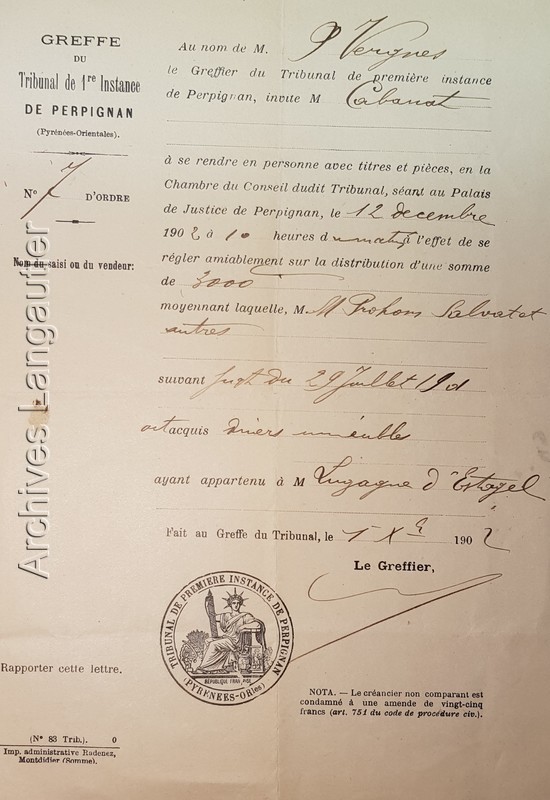 GREFFE
DU
Tribunal de 1re Instance
DE PERPIGNAN
(Pyrénées-Orientales).
No 7 D'ORDRE
Nom du saisi ou du vendeur:
Au nom de M. P Vergnes
le Greffier du Tribunal de première instance
de Perpignan, invite M Cabanat
à se rendre en personne avec titres et pièces, en la
Chambre du Conseil dudit Tribunal, séant au Palais
de Justice de Perpignan, le 12 decembre
1902 à 10 heures du matin à l'effet de se
régler amiablement sur la distribution d'une somme
de 3000
moyennant laquelle, M. M Prohom Salvat et
autres
suivant jugt du 29 Juillet 1901
ont acquis divers immeubles
ayant appartenu à M Lugagne d'Estagel
Fait au Greffe du Tribunal, le 1 Xe 1902
Le Greffier,
TRIBUNAL DE PREMIERE INSTANCE DE PERPIGNAN
RÉPUBLIQUE FRANÇAISE
(PYRENÉES-ORles)
Rapporter cette lettre.
NOTA. — Le créancier non comparant est
condamné à une amende de vingt-cinq
francs (art. 751 du code de procédure civ.).
(No 83 Trib.). 0
Imp. administrative Radenez,
Montdidier (Somme).
Archives Langautier